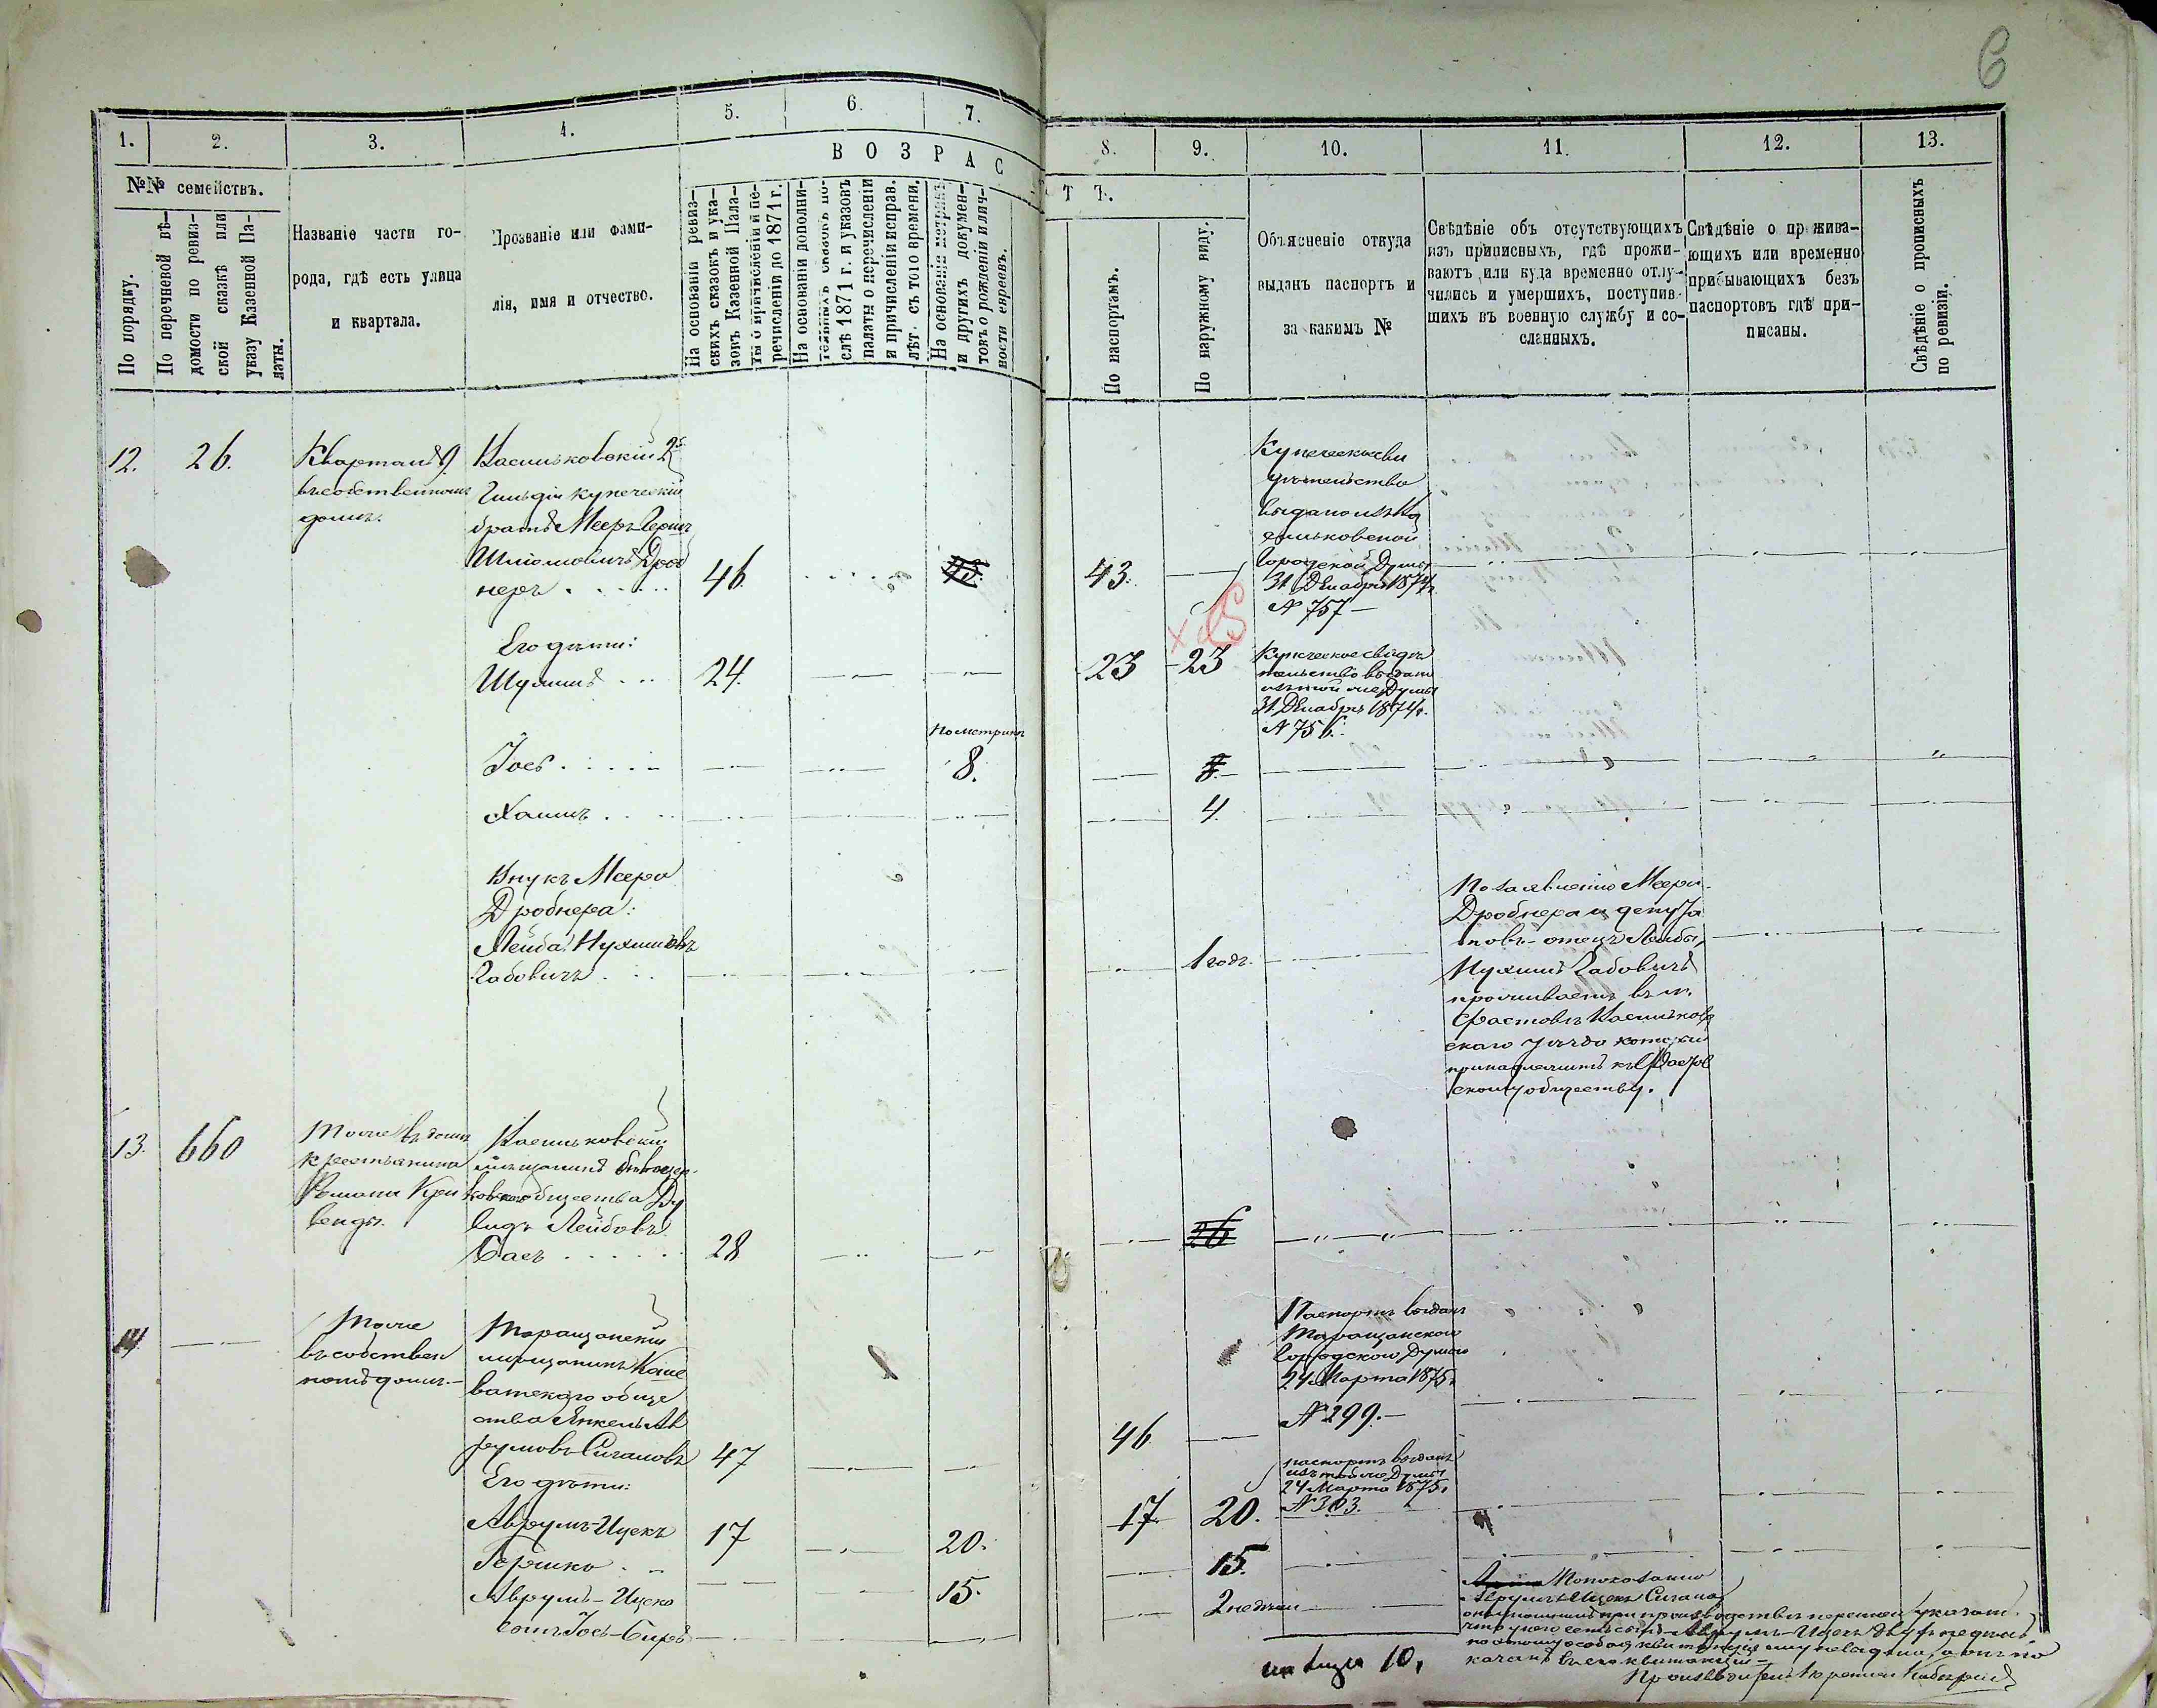 6
1.
2.
3.
4.
5.
6.
7.
8.
9.
10.
11.
12.
13.
№№ семействъ.
По порядку.
По перечневой вѣ-
домости по ревиз-
ской сказкѣ или
указу Казенной Па-
латы.
Названіе части го-
рода, гдѣ есть улица
и квартала.
Прозваніе или фами-
лія, имя и отчество.
В О З Р А С
Т Ъ.
На основаніи ревиз-
скихъ сказокъ и ука-
зовъ Казенной Пала-
ты о причисленіи и пе-
речисленіи до 1871 г.
На основаніи дополни-
тельныхъ сказокъ по-
слѣ 1871 г. и указовъ
палаты о перечисленіи
и причисленіи исправ.
лѣт. съ того времени.
На основаніи метрикъ
и другихъ докумен-
товъ о рожденіи и лич-
ности евреевъ.
По паспортамъ.
По наружному виду.
Объясненіе откуда
выданъ паспортъ и
за какимъ №
Свѣдѣніе объ отсутствующихъ
изъ приписныхъ, гдѣ прожи-
ваютъ или куда временно отлу-
чились и умершихъ, поступив-
шихъ въ военную службу и со-
сланныхъ.
Свѣдѣніе о прожива-
ющихъ или временно
прибывающихъ безъ
паспортовъ гдѣ при-
писаны.
Свѣдѣніе о прописныхъ
по ревизіи.
12.
26.
Кварталъ 9.
въ собственномъ
домѣ.
Васильковскій 2й
Гильдіи купеческій
братъ Мееръ-Герш
Шліомовичъ Дроб
неръ
46
43.
43.
Купеческое сви
дѣтельство
выдано изъ Ва
сильковской
Городской Думы
31 Декабря 1874 г.
№ 757 —
Его дѣти:
Шулимъ
24.
23
23
Купеческое свидѣ
тельство выдано
изъ той же Думы
31 Декабря 1874 г.
№ 756.
Іось
По метрикѣ
8.
8.
Хаимъ
4.
Внукъ Меера
Дробнера:
Лейба Нухимовъ
Рабовичъ
1 годъ.
По заявленію Меера
Дробнера и депута
товъ - отецъ Лейбы,
Нухимъ Рабовичъ
проживаетъ въ м.
Фастовѣ Васильков
скаго уѣзда который
принадлежитъ къ Фастов
скому обществу.
13.
660
Тоже въ домѣ
крестьянина
Романа Кри
венды.
Васильковскій
мѣщанинъ бѣлоцер
ковскаго общества Ду
видъ Лейбовъ
Басъ
28
26
14.
Тоже
въ собствен
номъ домѣ.—
Таращанскій
мѣщанинъ Каше
ватскаго обще
ства Янкель Ав
румовъ Сигаловъ
47
46
Паспортъ выданъ
Таращанскою
Городскою Думою
24 Марта 1875 г.
№ 299.—
Его дѣти:
Аврумъ-Ицекъ
17
20.
17.
20.
паспортъ выданъ
изъ той же Думы
24 Марта 1875 г.
№ 303.
Гершко
15.
15.
Аврумъ-Ицека
сынъ Іось-Биръ
2 недѣли
По показанію
Аврумъ-Ицека Сигалова